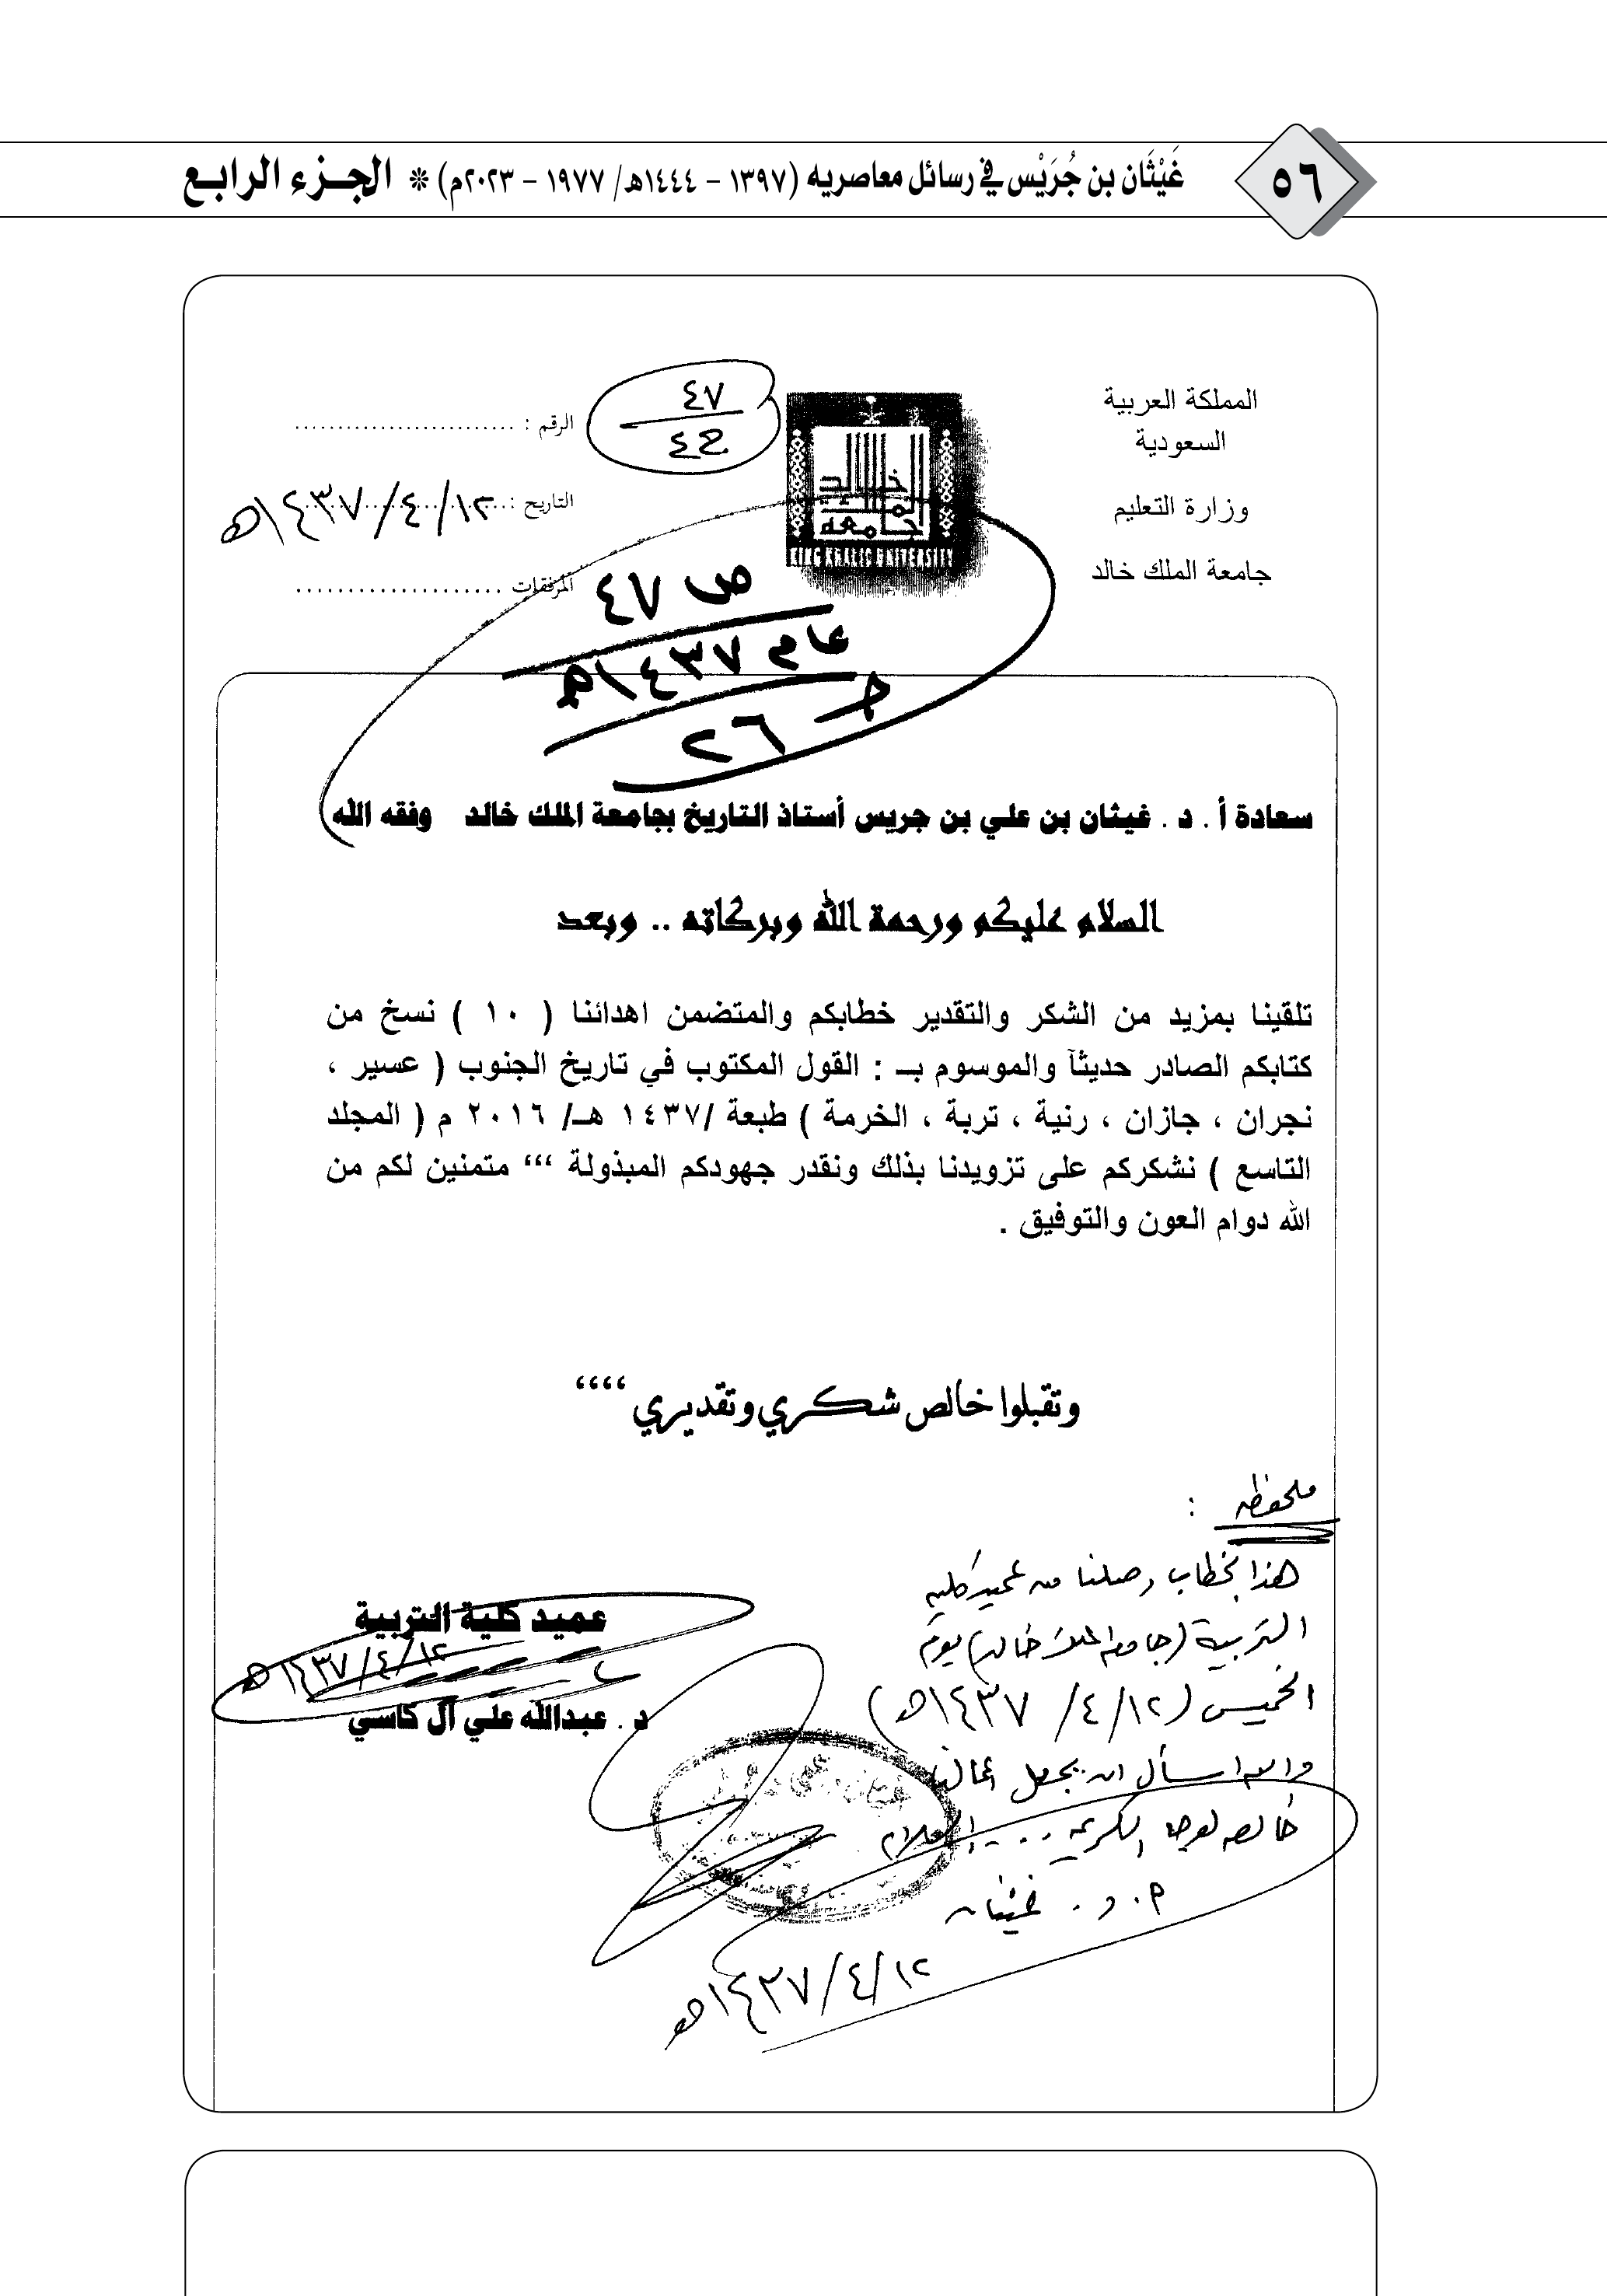 ٥٦
غَيْثَان بن جُرَيْس في رسائل معاصريه (١٣٩٧ - ١٤٤٤هـ/ ١٩٧٧ - ٢٠٢٣م) * الجزء الرابع
المملكة العربية
السعودية
وزارة التعليم
جامعة الملك خالد
KING KHALID UNIVERSITY
٤٧
الرقم : ..........................
التاريخ : ١٤٣٧/٤/١٢هـ
المرفقات ....................
ص ٤٧
عام ١٤٣٧هـ
٢٦
سعادة أ . د . غيثان بن علي بن جريس أستاذ التاريخ بجامعة الملك خالد وفقه الله
السلام عليكم ورحمة الله وبركاته .. وبعد
تلقينا بمزيد من الشكر والتقدير خطابكم والمتضمن اهدائنا ( ١٠ ) نسخ من
كتابكم الصادر حديثآ والموسوم بـ : القول المكتوب في تاريخ الجنوب ( عسير ،
نجران ، جازان ، رنية ، تربة ، الخرمة ) طبعة /١٤٣٧ هـ/ ٢٠١٦ م ( المجلد
التاسع ) نشكركم على تزويدنا بذلك ونقدر جهودكم المبذولة ،،، متمنين لكم من
الله دوام العون والتوفيق .
وتقبلوا خالص شكري وتقديري ،،،،
ملحوظه :
هذا الخطاب وصلنا من عميد كلية
التربية (جامعة الملك خالد) يوم
الخميس (١٤٣٧/٤/١٢هـ)
والله اسأل ان يجعل اعمالنا
خالصه لوجهه الكريم ... والسلام
أ. د. غيثان
١٤٣٧/٤/١٢هـ
عميد كلية التربية
١٤٣٧/٤/١٢هـ
د . عبدالله علي آل كاسي